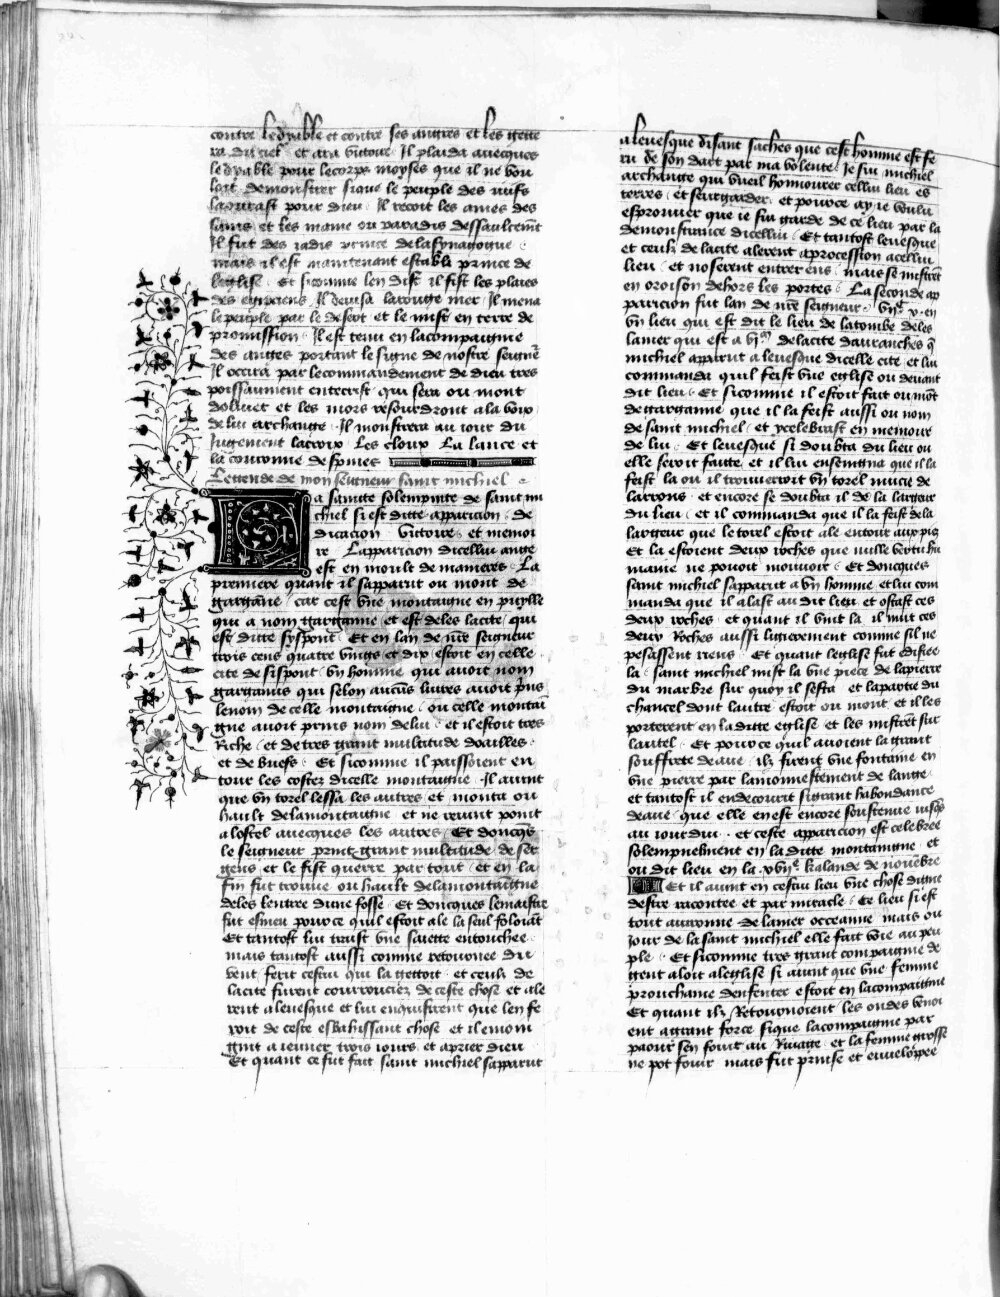 contre le dyable et contre ses angres et les gette
ra du ciel et ara victoire Il plaida avecques
le dyable pour le corps moyses que il ne vou
loit demonstrer si que le peuple des iuifs
laourast pour dieu Il recoit les ames des
sains et les maine ou paradis dessaultemẽt
Il fut des iadis prince de la synagogue
mais il est maintenant establi prince de
leglise Et si comme len dist il fist les plaies
des egipciens Il devisa la rouge mer Il mena
le peuple par le desert et le mist en terre de
promission Il est tenu en la compaignie
des anges portant le signe de nostre seignẽ
Il occira par le commandement de dieu tres
poissaument entecrist qui sera ou mont
dolivet et les mors resourdront a la voix
de lui archange Il monstrera au iour du
Iugement la croix Les cloux La lance et
la couronne despines
Legende de mon seigneur saint michiel
La sainte solempnite de saint mi
chiel si est ditte apparicion de
dicacion victoire et memoi
re Lapparicion dicellui ange
est en moult de manieres La
premiere quant il sapparut ou mont de
gargãne car cest vne montaigne en puylle
qui a nom gargãne et est deles la cite qui
est ditte syspont Et en lan de nr̃e seigneur
trois cens quatre vings et dix estoit en celle
cite de sispont vn homme qui avoit nom
garganus qui selon aucũs livres avoit pris
le nom de celle montaigne ou celle montai
gne avoit prins nom de lui et il estoit tres
Riche et de tres grant multitude doailles
et de buefs Et si comme il paissoient en
tour les costez dicelle montaigne Il avint
que vn torel lessa les autres et monta ou
hault de la montaigne et ne revint point
a lostel avecques les autres Et doncq̃s
le seigneur print grant multitude de ser
gens et le fist querre par tout et en la
fin fut trouve ou hault de la montaigne
deles lentree dune fosse Et doncques le maistre
fut esmeu pource quil estoit ale la seul foloiãt
Et tantost lui traist vne saiette entouchee
mais tantost aussi comme retournee du
vent ferit cestui qui la gettoit et ceulx de
la cite furent courrouciez de ceste chose et ale
rent a levesque et lui enquistrent que len fe
roit de ceste esbahissant chose et il enioin
gnit a ieuner trois iours et a prier dieu
Et quant ce fut fait saint michiel sapparut
a levesque disant saches que cest homme est fe
ru de son dart par ma volente Je sui michiel
archange qui vueil honnourer cellui lieu es
terres et seurgarder et pource ay ie voulu
esprouver que ie sui garde de ce lieu par la
demonstrance dicellui Et tantost levesque
et ceulx de la cite alerent a procession a cellui
lieu et noserent entrer ens mais se mistrẽt
en oroison dehors les portes La seconde ap
paricion fut lan de nr̃e seigneur vijᶜ x en
vn lieu qui est dit le lieu de la tombe deles
la mer qui est a vj de la cite dauranches q̃
michiel apparut a levesque dicelle cite et lui
commanda quil feist vne eglise ou devant
dit lieu Et si comme il estoit fait ou mõt
de garganne que il la feist aussi ou nom
de saint michiel et ycelebrast en memoire
de lui Et levesque si doubta du lieu ou
elle seroit faitte et il lui enseingna que il la
feist la ou il trouveroit vn torel mucie de
larrons et encore se doubta il de la largeur
du lieu et il commanda que il la feist de la
largeur que le torel estoit ale entour aux piez
Et la estoient deux roches que nulle vertu hu
maine ne povoit mouvoir Et doncques
saint michiel sapparut a vn homme et lui com
manda que il alast au dit lieu et ostast ces
deux roches et quant il vint la il mut ces
deux Roches aussi ligierement comme sil ne
pesassent riens Et quant leglise fut edifiee
la saint michiel mist la vne piece de la pierre
du marbre sur quoy il sesta et la partie du
chancel dont lautre estoit ou mont et il les
porterent en la ditte eglise et les mistrẽt sur
lautel Et pource quil avoient la grant
souffrete deaue ilz firent vne fontaine en
vne pierre par lamonnestement de lange
et tantost il en decourut si grant habondance
deaue que elle en est encore soustenue iusq̃s
au iour dui et ceste apparicion est celebree
solempnelment en la ditte montaingne et
ou dit lieu en la xvijᵉ kalande de novẽbre
Et il avint en cestui lieu vne chose digne
destre racontee et par miracle Ce lieu si est
tout auronne de la mer occeanne mais ou
iour de la saint michiel elle fait voie au peu
ple Et si comme tres grant compaignie de
gent aloit a leglise si avint que vne femme
prouchaine denfenter estoit en la compaignie
Et quant ilz Retournoient les ondes venoi
ent a grant force si que la compaignie par
paour sen fouit au Rivage et la femme grosse
ne pot fouir mais fut prinse et envelopee